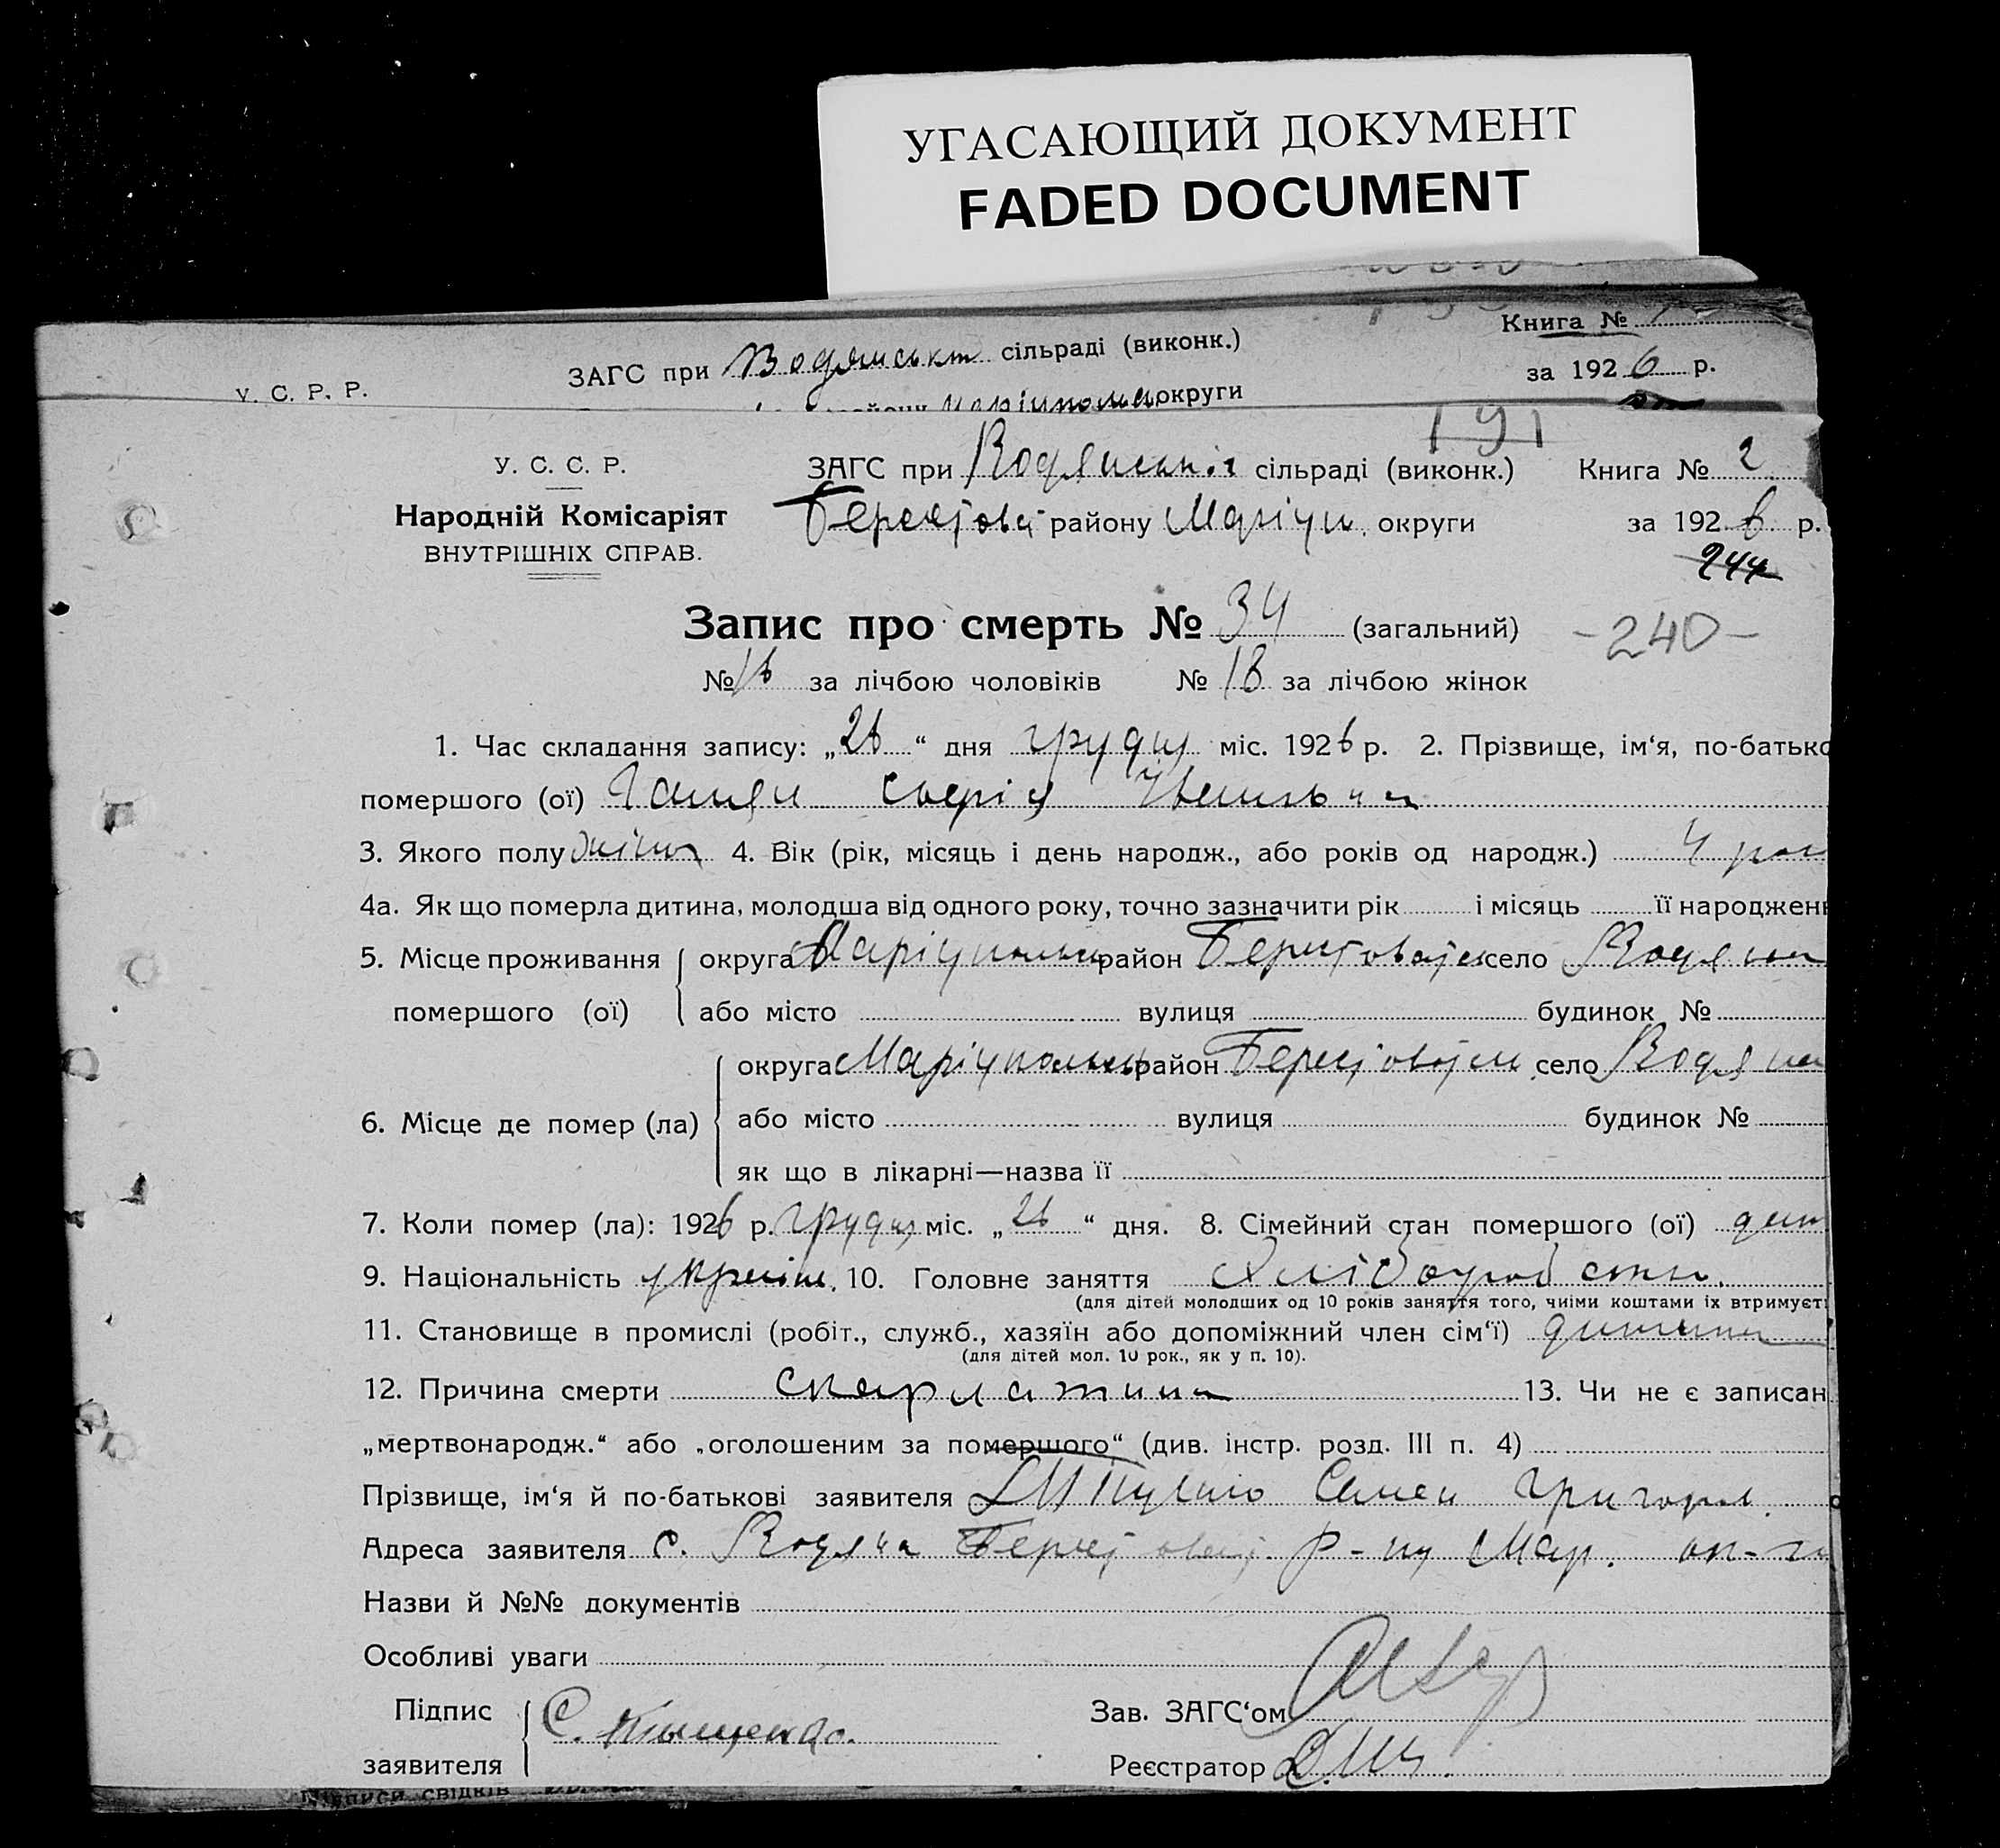 УГАСАЮЩИЙ ДОКУМЕНТ
FADED DOCUMENT
Книга №
ЗАГС при Водянськ сільраді (виконк.)
за 1926 р.
У. С. Р. Р.
округи
191
У. С. С. Р.
ЗАГС при Водянській сільраді (виконк.) Книга № 2
Народній Комісаріят
району Маріуп. округи за 1926 р.
ВНУТРІШНІХ СПРАВ.
244
Запис про смерть № 34 (загальний) -240-
№ 16 за лічбою чоловіків № 18 за лічбою жінок
1. Час складання запису: „26“ дня грудня міс. 1926 р. 2. Прізвище, ім‘я, по-батько
помершого (ої)
3. Якого полу жіноч 4. Вік (рік, місяць і день народж., або років од народж.) 4 рок
4а. Як що померла дитина, молодша від одного року, точно зазначити рік і місяць її народжен
5. Місце проживання округа район село Водяна
помершого (ої) або місто вулиця будинок №
округа район село Водяна
6. Місце де помер (ла) або місто вулиця будинок №
як що в лікарні—назва її
7. Коли помер (ла): 1926 р. грудня міс. „26“ дня. 8. Сімейний стан помершого (ої) дит
9. Національність україн. 10. Головне заняття Хліборобство.
(для дітей молодших од 10 років заняття того, чиїми коштами їх втримуєт
11. Становище в промислі (робіт., служб., хазяїн або допоміжний член сім‘ї) дитина
(для дітей мол. 10 рок., як у п. 10).
12. Причина смерти скарлатина 13. Чи не є записан
„мертвонародж.“ або „оголошеним за помершого“ (див. інстр. розд. III п. 4)
Прізвище, ім‘я й по-батькові заявителя Семен Григор.
Адреса заявителя с. Водяна р-ну Мар. ок-ги
Назви й №№ документів
Особливі уваги
Підпис
заявителя С.
Зав. ЗАГС‘ом
Реєстратор
Підписи свідків